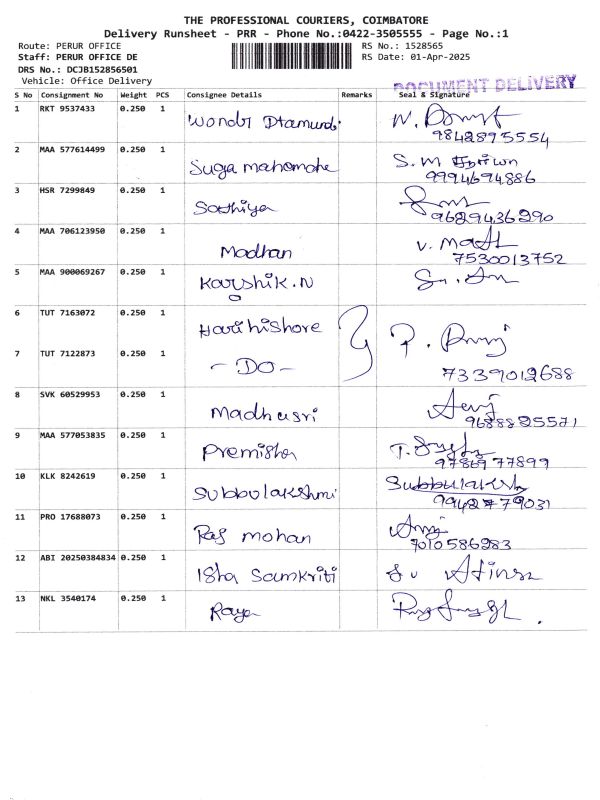 THE PROFESSIONAL COURIERS, COIMBATORE
Delivery Runsheet - PRR - Phone No.:0422-3505555 - Page No.:1
Route: PERUR OFFICE
RS No.: 1528565
Staff: PERUR OFFICE DE
RS Date: 01-Apr-2025
DRS No.: DCJB152856501
Vehicle: Office Delivery
DOCUMENT DELIVERY
S No Consignment No Weight PCS Consignee Details Remarks Seal & Signature
1 RKT 9537433 0.250 1
9842895554
2 MAA 577614499 0.250 1 S.M
9994694886
3 HSR 7299849 0.250 1 Sathiya
9629436290
4 MAA 706123950 0.250 1 Madhan V.
7530013752
5 MAA 900069267 0.250 1 Kaushik.N
6 TUT 7163072 0.250 1 Harikishore
7 TUT 7122873 0.250 1 - DO -
7339012688
8 SVK 60529953 0.250 1 Madhusri
9688825571
9 MAA 577053835 0.250 1 Premisha
9786977899
10 KLK 8242619 0.250 1 Subbulakshmi
11 PRO 17688073 0.250 1 Raj mohan
7010586283
12 ABI 20250384834 0.250 1 Isha Samkriti
13 NKL 3540174 0.250 1 Raya